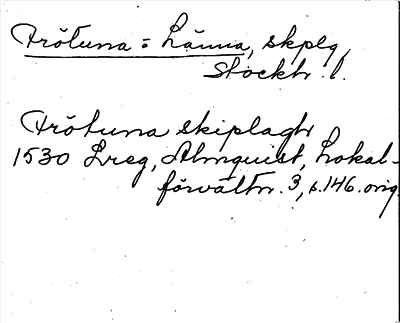 Frötuna = Länna, skplg,
Stockh. l.
Frötuna skiplagh
1530 Lreg, Almquist, Lokal-
förvaltn. 3, s. 146. orig.